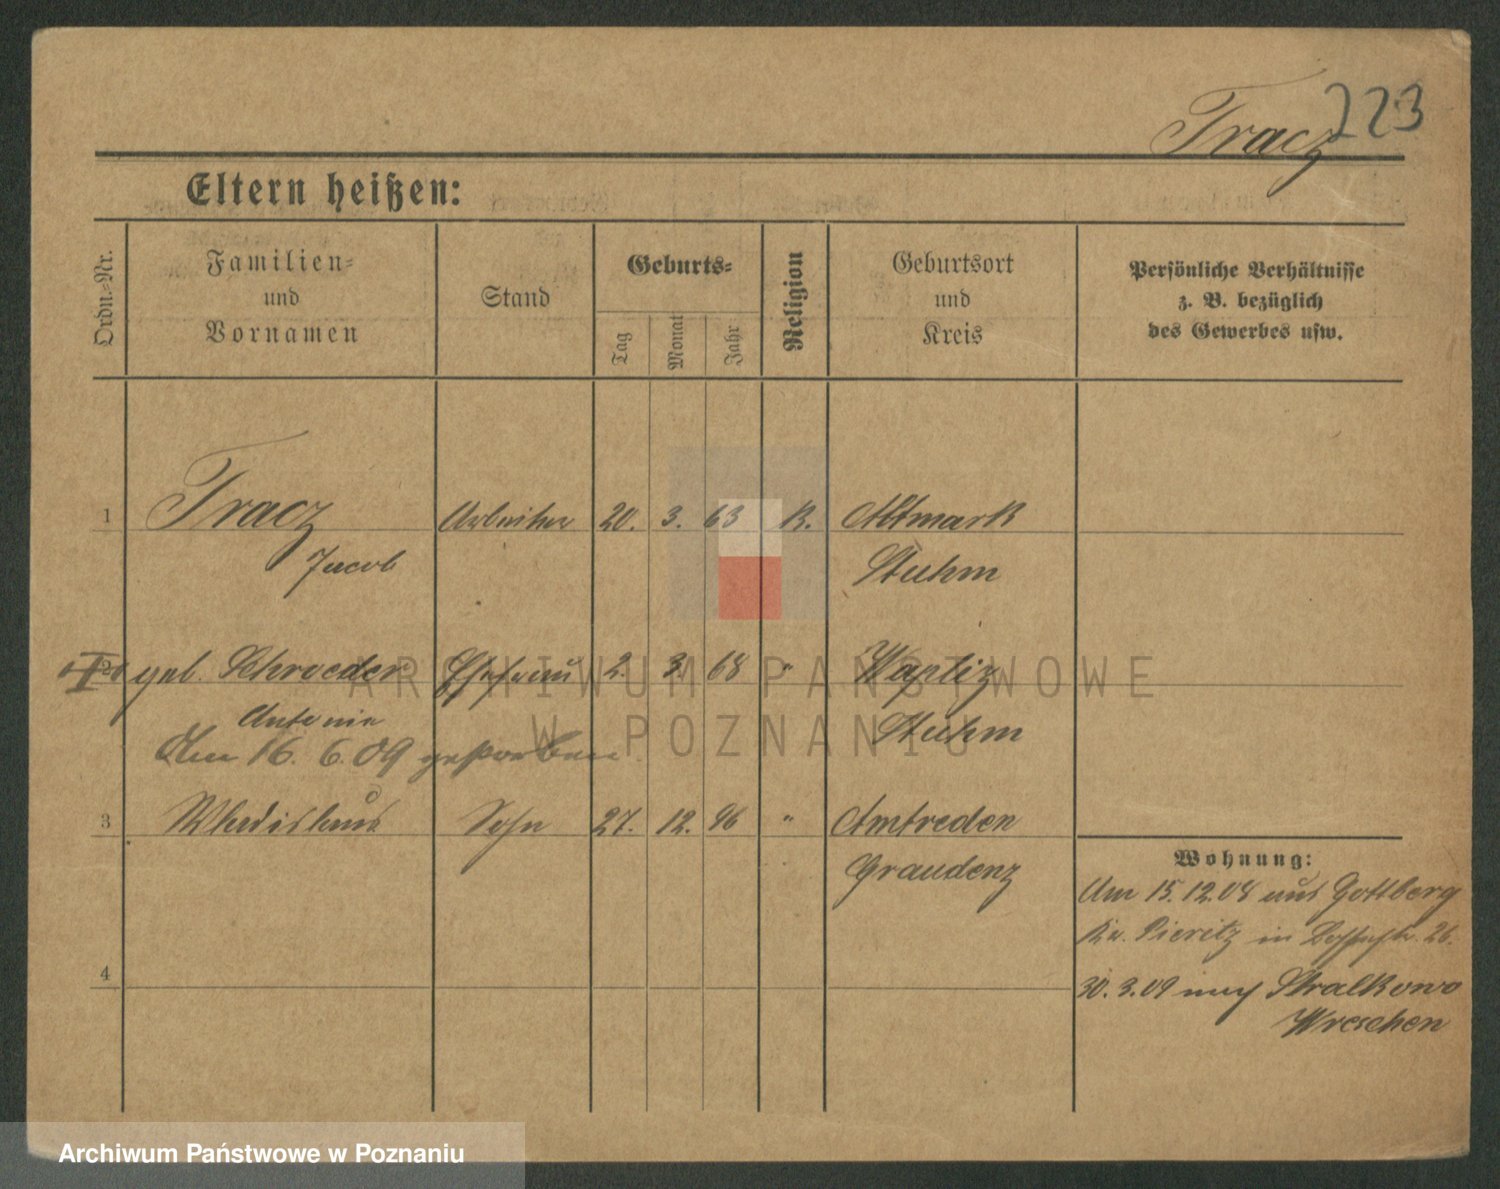 223
Tracz
Eltern heißen:
Ordn.-Nr.
Familien-
und
Vornamen
Stand
Geburts-
Tag
Monat
Jahr
Religion
Geburtsort
und
Kreis
Persönliche Verhältnisse
z. B. bezüglich
des Gewerbes usw.
1 Tracz Arbeiter 20. 3. 63 K. Altmark
Jacob Stuhm
2 geb. Schroeder Ehefrau 2. 3. 68 " Waplitz
Antonie Stuhm
Am 16. 6. 09 gestorben.
3 Wladislaus Sohn 27. 12. 96 " Amtreden
Graudenz
4
Wohnung:
Am 15. 12. 08 aus Gottberg
Kr. Pieritz in 26.
30. 3. 09 nach Stralkowo
Wreschen
ARCHIWUM PAŃSTWOWE
W POZNANIU
Archiwum Państwowe w Poznaniu